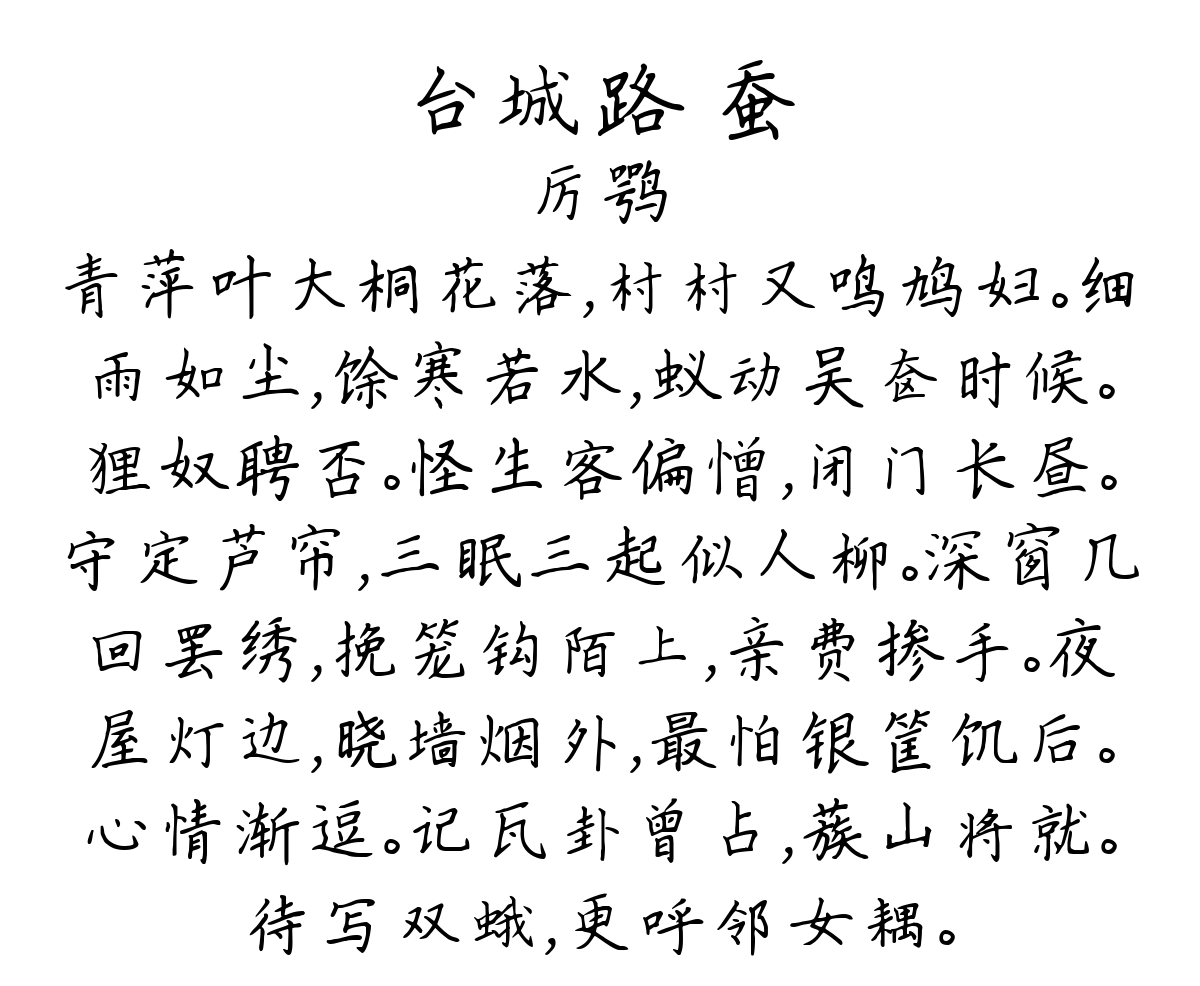 台城路 蚕
厉鹗
青萍叶大桐花落,村村又鸣鸠妇。细
雨如尘,馀寒若水,蚁动吴奁时候。
狸奴聘否。怪生客偏憎,闭门长昼。
守定芦帘,三眠三起似人柳。深窗几
回罢绣,挽笼钩陌上,亲费掺手。夜
屋灯边,晓墙烟外,最怕银筐饥后。
心情渐逗。记瓦卦曾占,蔟山将就。
待写双蛾,更呼邻女耦。